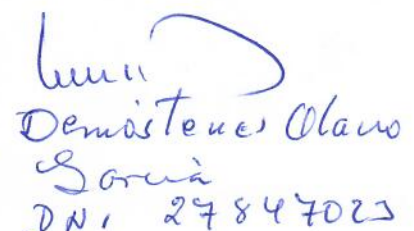 Demóstenes Olano
García
DNI 27847023